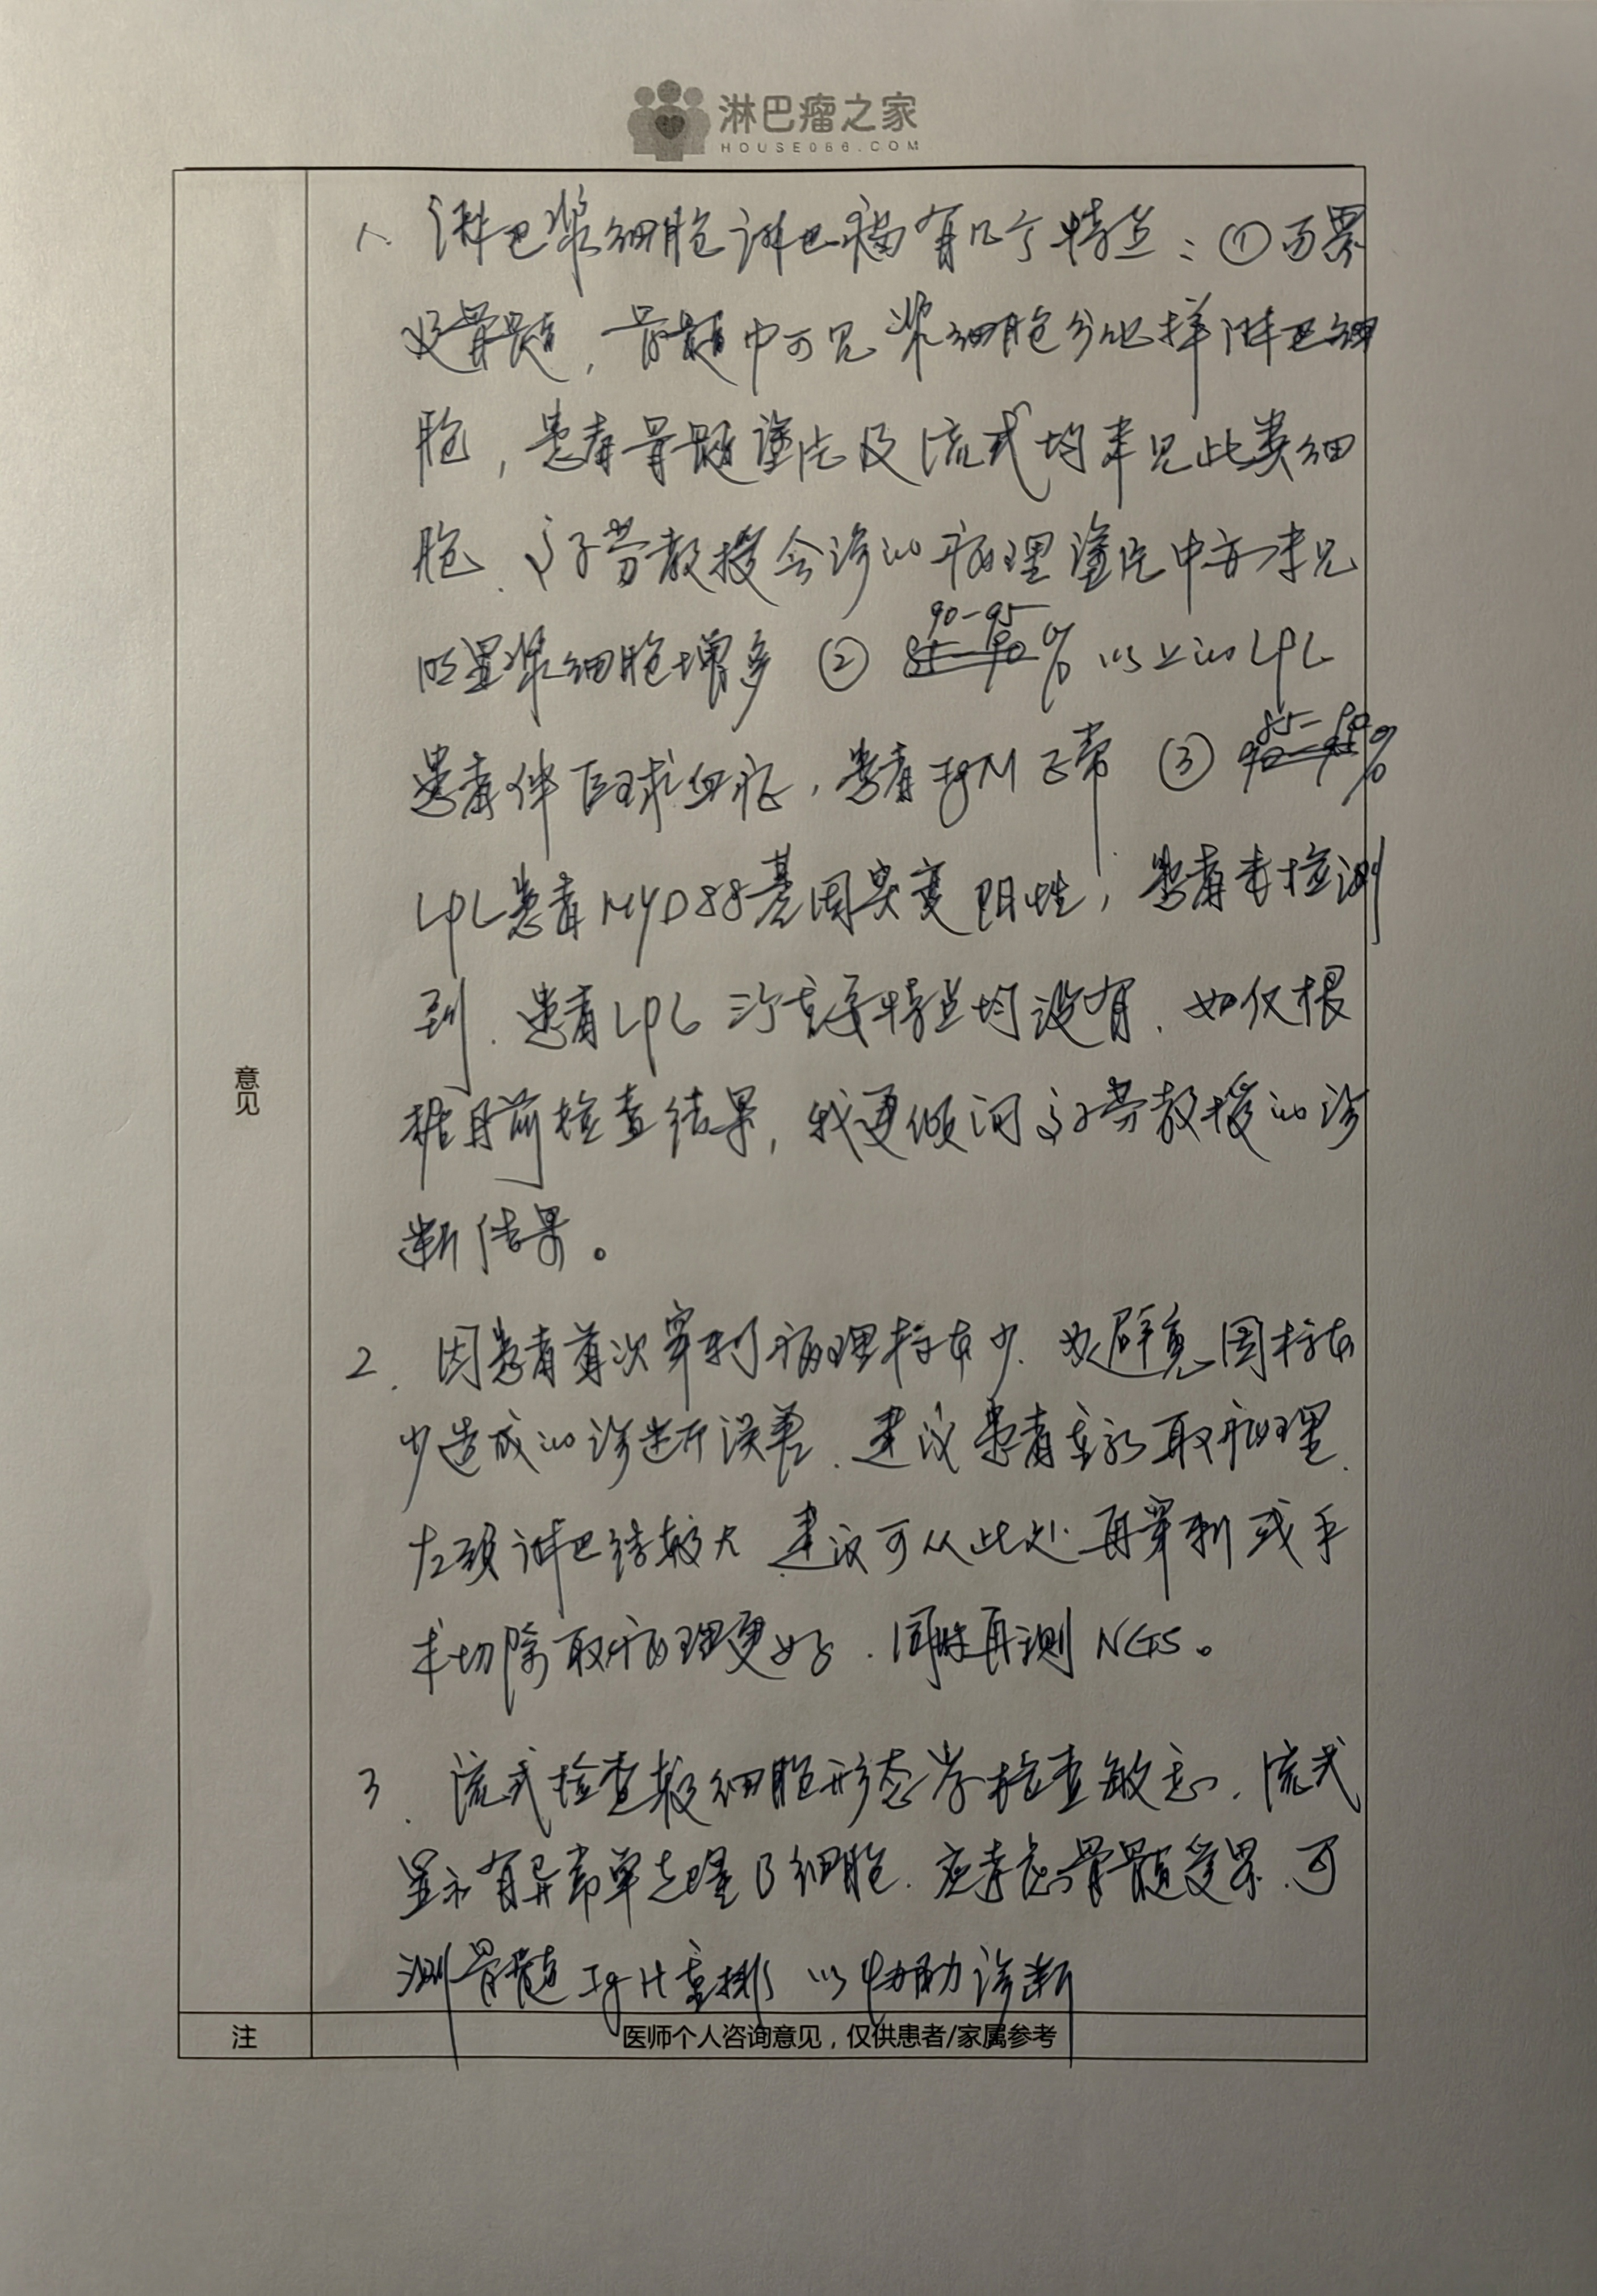 淋巴瘤之家
HOUSE086.COM
1. 淋巴浆细胞淋巴瘤有几个特点：①可累
及骨髓，骨髓中可见浆细胞分化样淋巴细
胞，患者骨髓涂片及流式均未见此类细
胞．教授会诊的病理涂片中亦未见
明显浆细胞增多 ② 90-95% 以上的LPL
患者伴巨球血症，患者IgM正常 ③ 85-90%
LPL患者MYD88基因突变阳性，患者未检测
到．患者LPL三个主要特点均没有．如仅根
据目前检查结果，我更倾向教授的诊
断结果。
2．因患者首次穿刺病理标本少．为避免因标本
少造成的诊断误差．建议患者重新取病理．
左颈淋巴结较大 建议可从此处再穿刺或手
术切除取病理更好．同时再测NGS。
3．流式检查较细胞形态学检查敏感．流式
显示有异常单克隆B细胞．应考虑骨髓受累．可
测骨髓IgH重排以协助诊断
意见
注
医师个人咨询意见，仅供患者/家属参考